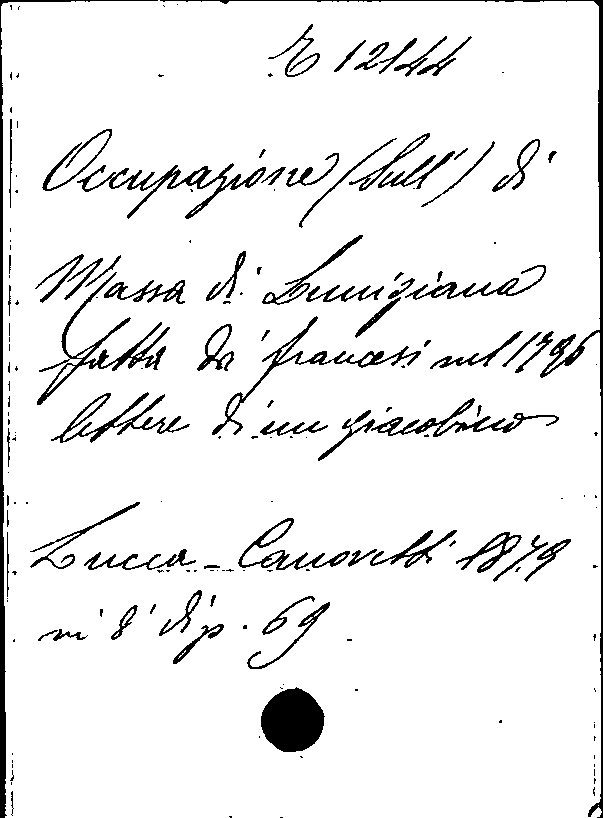 E 12144
Occupazione (Sull') di
Massa di Lunigiana
fatta da' francesi nel 1796
lettere di un giacobino
Lucca - Canovetti 1879
in 8° di p. 69